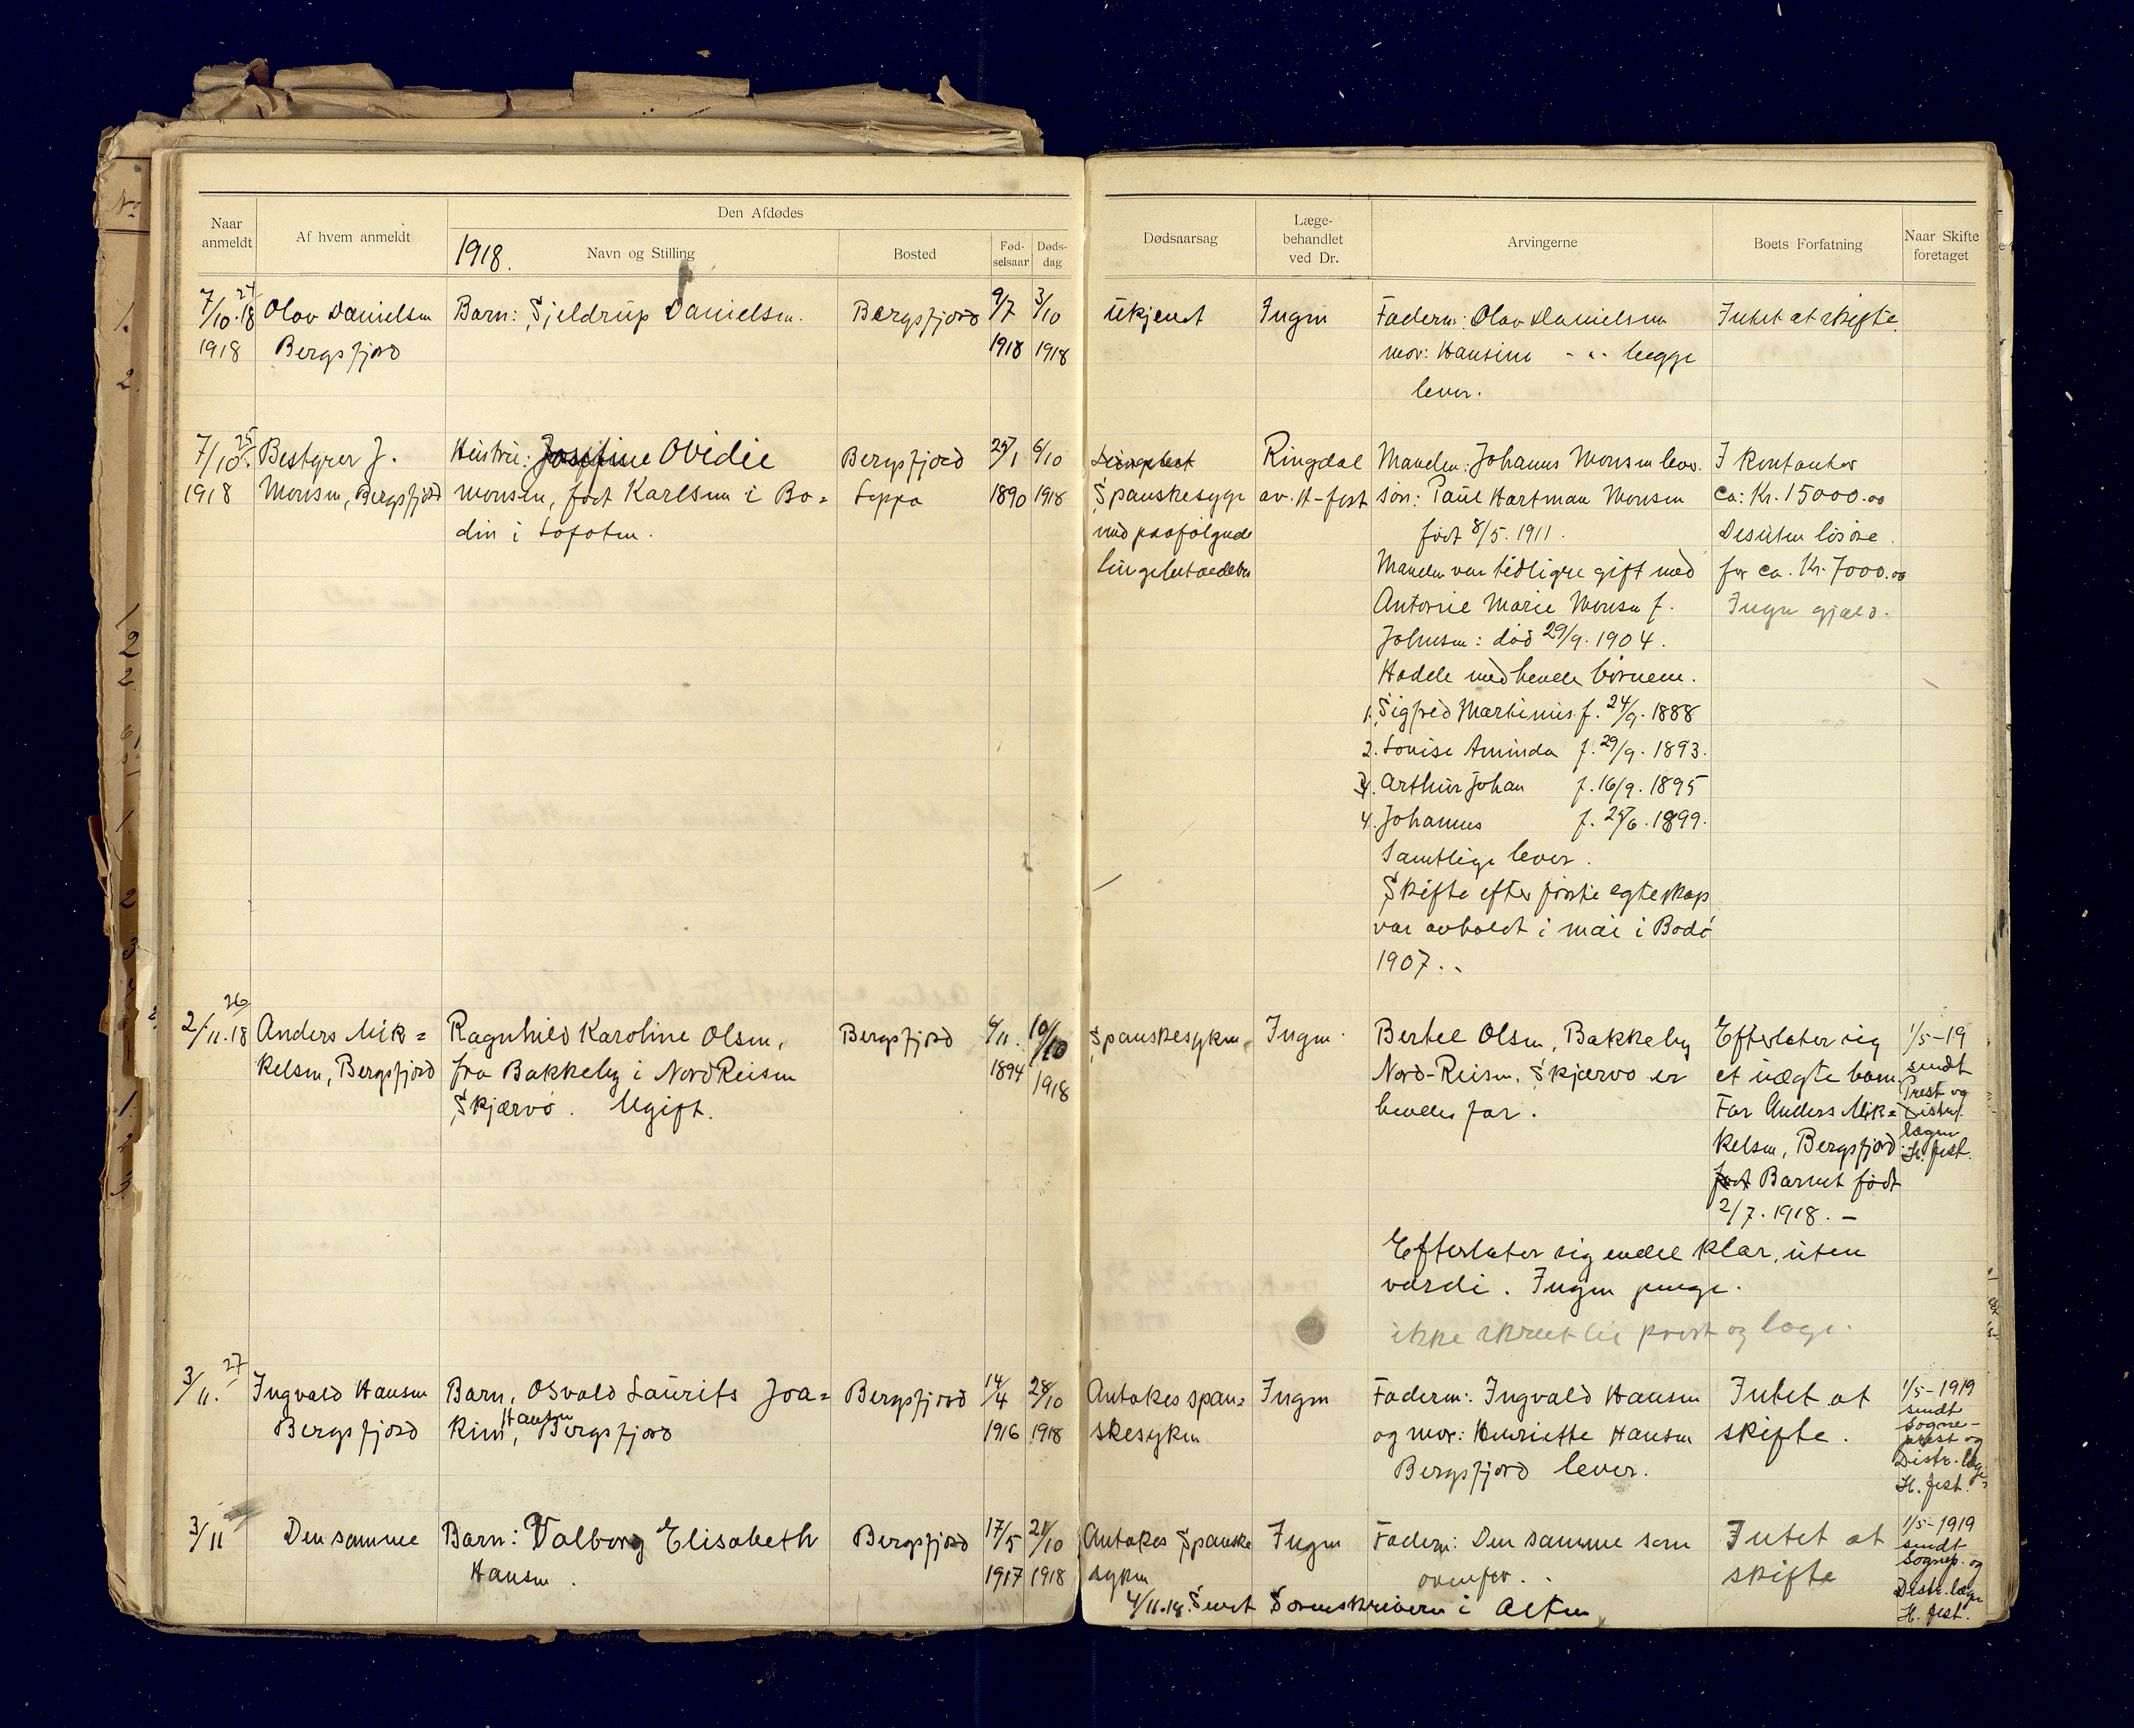 Naar anmeldt
Af hvem anmeldt
Den Afdødes
1918.
Navn og Stilling
Bosted
Fødselsaar
Dødsdag
Dødsaarsag
Læge-behandlet ved Dr.
Arvingerne
Boets Forfatning
Naar Skifte foretaget
24
7/10.18
1918
Olav Danielsen
Bergsfjord
Barn: Sjeldrup Danielsen.
Bergsfjord
9/7
1918
3/10
1918
Ukjendt
Ingen
Faderen: Olav Danielsen
mor: Hansine - " - begge
lever.
Intet at skifte.
25
7/10.
1918
Bestyrer J.
Monsen, Bergsfjord
Hustru: Josefine Ovidie
Monsen, født Karlsen i Bo=
din i Lofoten.
Bergsfjord
Loppa
25/1
1890
6/10
1918
Spanskesyge
med paafølgende
lungebetændelse
Ringdal
av. H-fest
Manden: Johannes Monsen lever.
søn: Paul Hartman Monsen
født 8/5. 1911.
Manden var tidligere gift med
Antonie Marie Monsen f.
Johnsen: død 29/9. 1904.
Hadde med hende børnene.
1. Sigfred Martinius f. 24/9. 1888
2. Lovise Aminda f. 29/9. 1893.
3. Arthur Johan f. 16/9. 1895
4. Johannes f. 25/6. 1899.
Samtlige lever.
Skifte efter første egteskap
var avholdt i mai i Bodø
1907..
I kontanter
ca: Kr. 15000.00
Desuten løsøre
for ca. Kr. 7000.00
Ingen gjæld.
26
2/11.18
Anders Mik=
kelsen, Bergsfjord
Ragnhild Karoline Olsen,
fra Bakkeby i NordReisen
Skjærvø. Ugift.
Bergsfjord
6/11.
1894
10/10
1918
Spanskesyken.
Ingen.
Bertel Olsen, Bakkeby
Nord-Reisen, Skjærvø er
hendes far.
Efterlater sig
et uægte barn.
Far Anders Mik=
kelsen, Bergsfjord.
født Barnet født
2/7. 1918. —
Efterlater sig endel klær, uten
værdi. Ingen penge.
ikke skrevet til prest og læge.
1/5-19
sendt
Prest og
Distr.
lægen
H. fest.
27
3/11.
Ingvald Hansen
Bergsfjord
Barn, Osvald Laurits Joa=
kim, Hansen Bergsfjord
Bergsfjord
14/4
1916
28/10
1918
Antakes span=
skesyken
Ingen
Faderen: Ingvald Hansen
og mor: Henriette Hansen
Bergsfjord lever.
Intet at
skifte.
1/5-1919
sendt
Sogne-
prest og
Distr. læge
H. fest.
3/11
Den samme
Barn: Valborg Elisabeth
Hansen.
Bergsfjord
17/5
1917
21/10
1918
Antakes Spanske
syken
Ingen
Faderen: Den samme som
ovenfor.
Intet at
skifte
1/5-1919
sendt
Sognep. og
Distr. læge
H. fest.
4/11.18. Sendt Sorenskriveren i Alten.